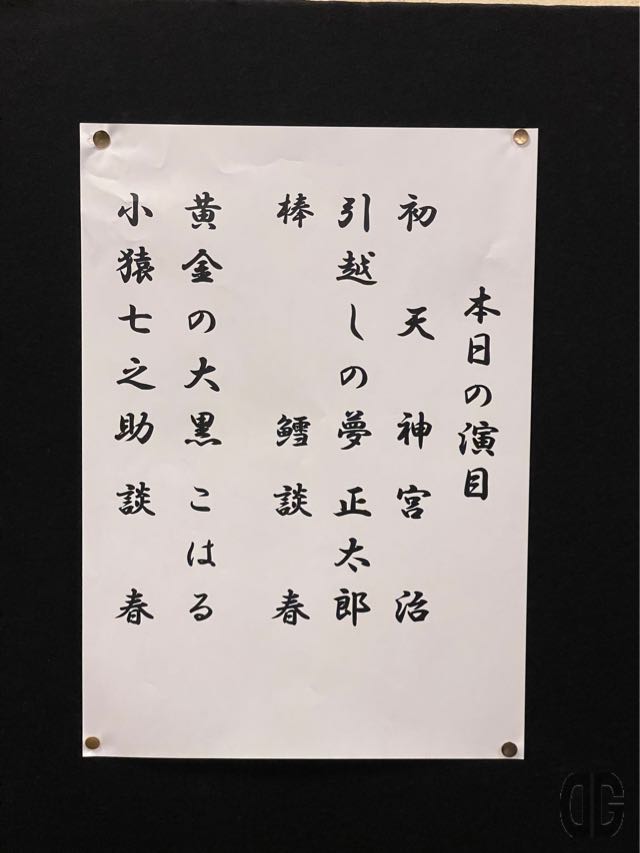 本日の演目
初天神 宮治
引越しの夢 正太郎
棒鱈 談春
黄金の大黒 こはる
小猿七之助 談春